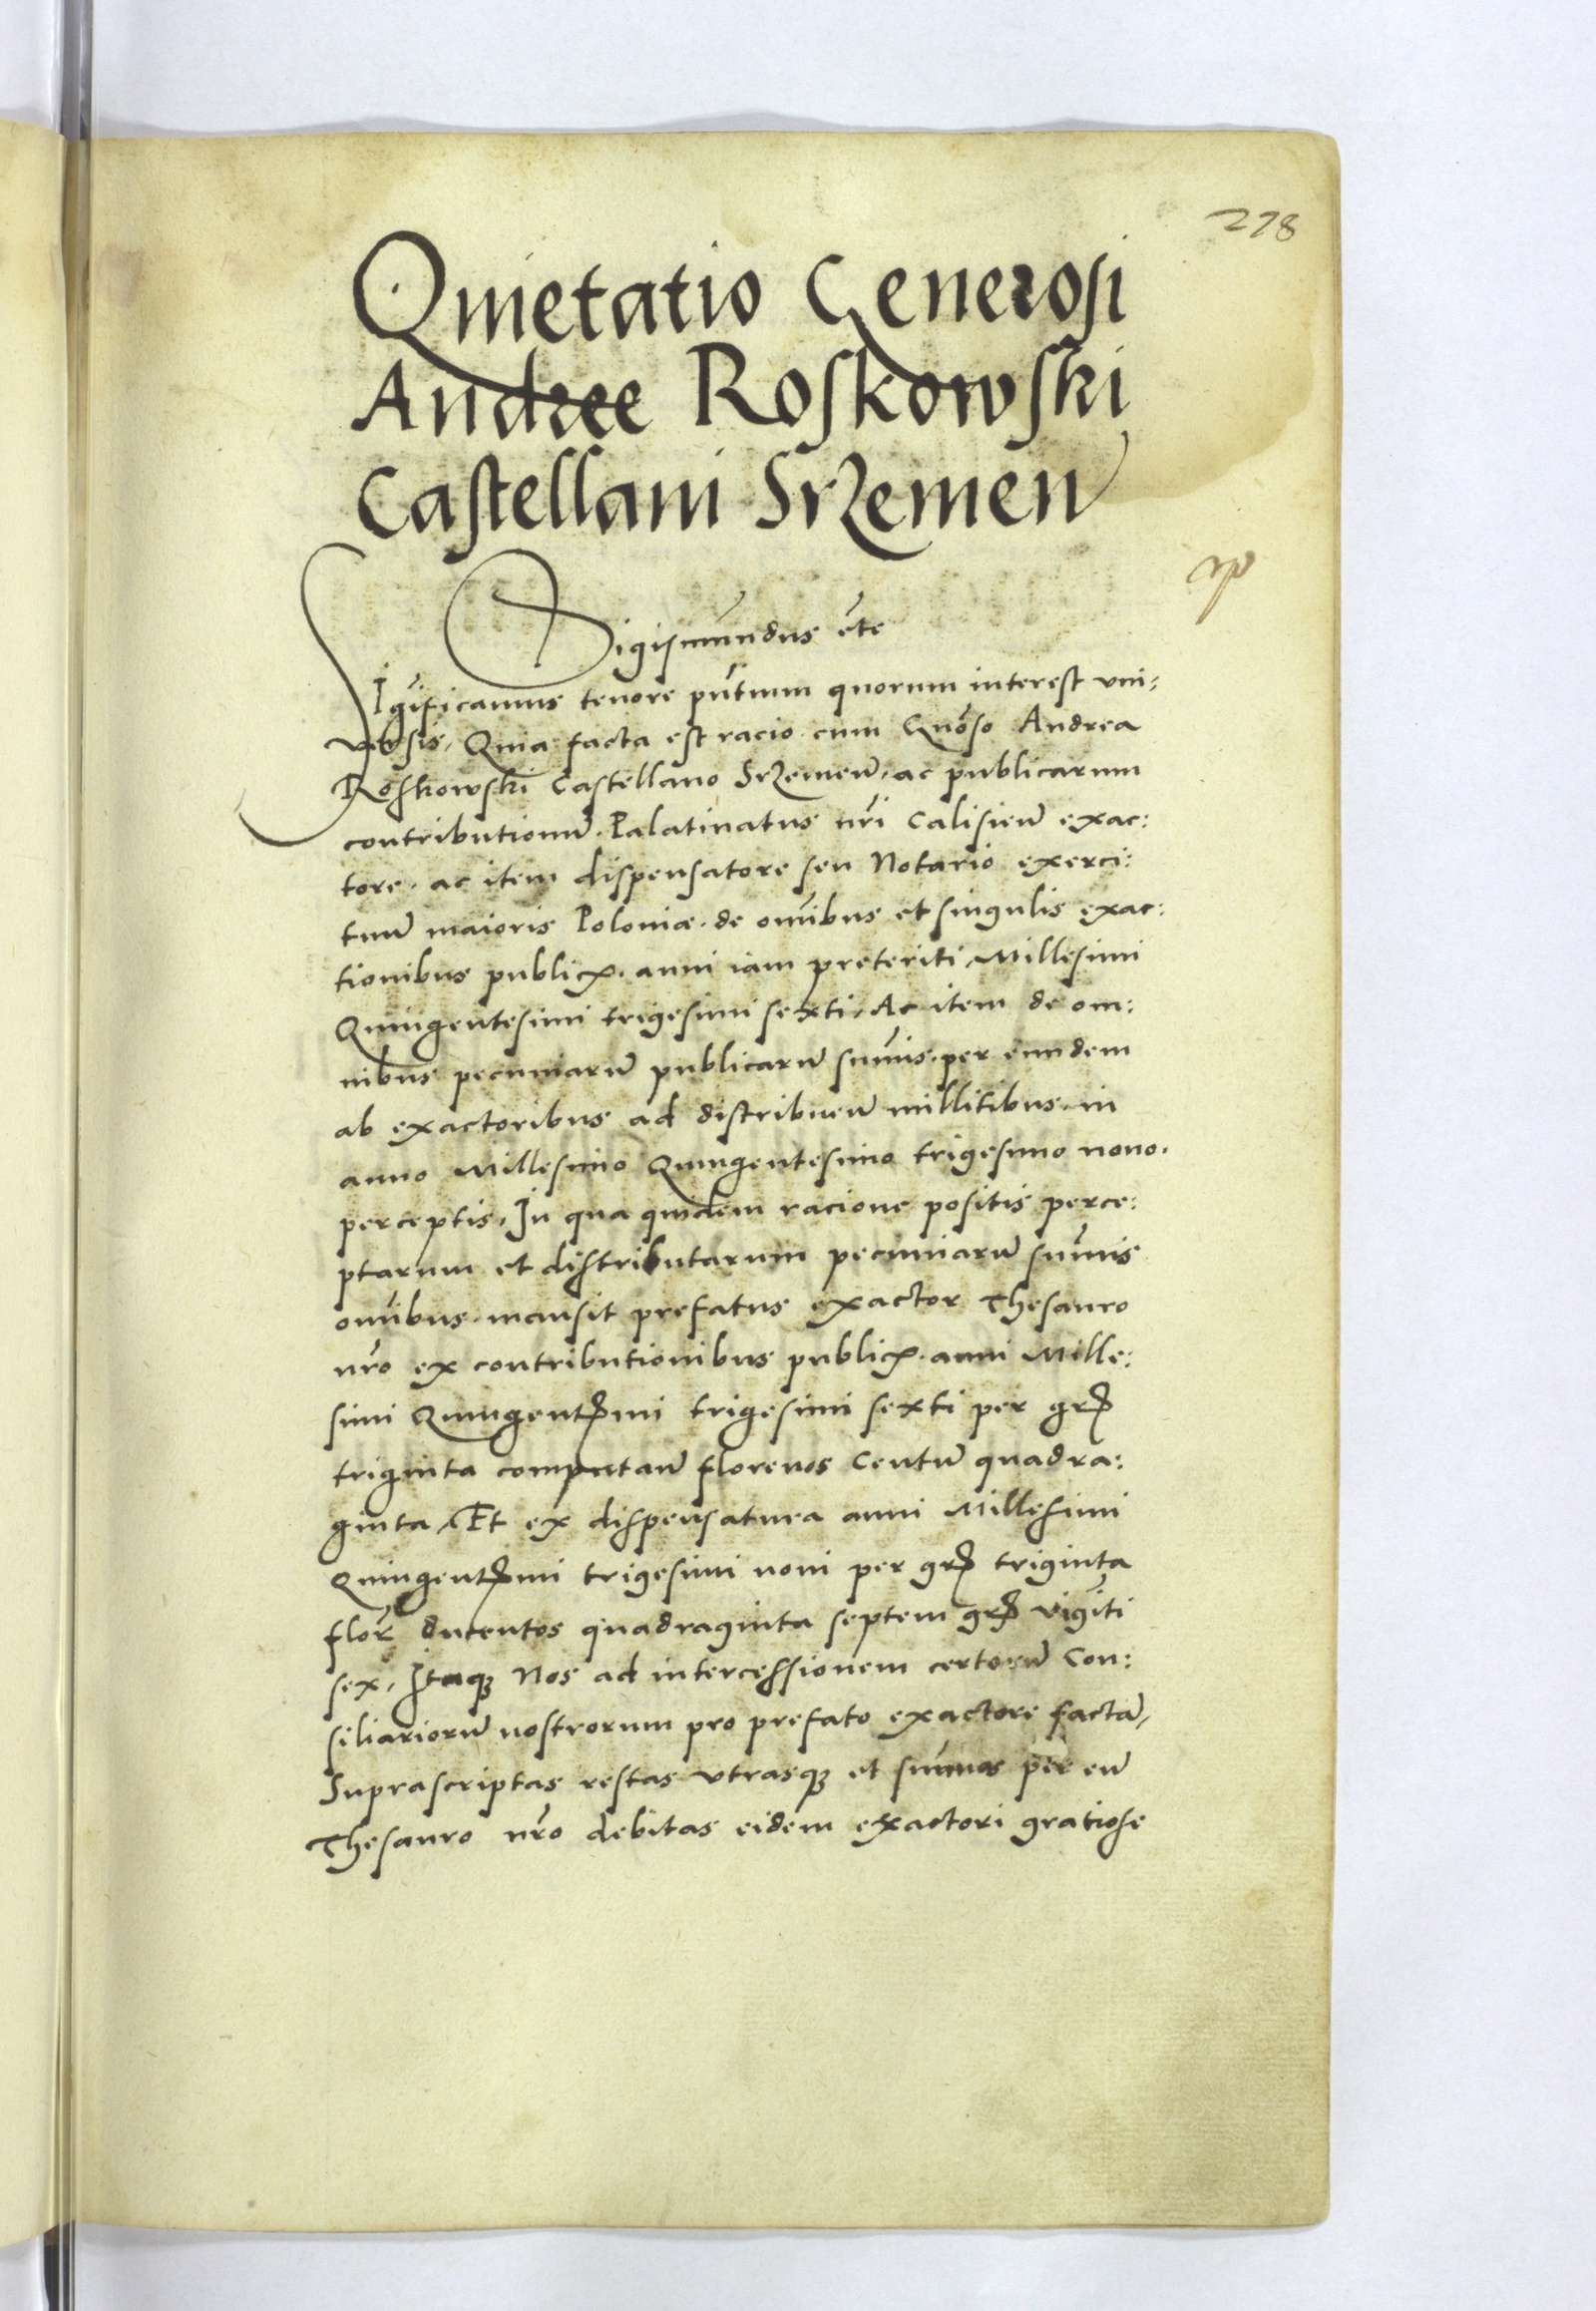 278
Quietatio Generosi
Andree Roskowski
Castellani Srzemeñ
Sigismundus etc
Sigīficamus tenore pñtium quorum interest vni:
versis, Quia facta est racio cum Gnõso Andrea
Roskowski Castellano Srzemeñ, ac publicarum
contributionū. Palatinatus nr̃i Calisieñ exac:
tore. ac item dispensatore seu Notario exerci:
tuū maioris Poloniæ. de om̃ibus et singulis exac:
tionibus publicꝭ. anni iam preteriti Millesimi
Quingentesimi trigesimi sexti, Ac item de om:
nibus pecuniarū publicarū sum̃is. per eundem
ab exactoribus ad distribueñ millitibus. in
anno Millesimo Quingentesimo trigesimo nono.
perceptis, In qua quidem racione positis perce:
ptarum et distributarum pecuniarū sum̃is
om̃ibus. mansit prefatus exactor Thesauro
nr̃o ex contributionibus publicꝭ. anni Mille:
simi Quingentꝭimi trigesimi sexti per grꝭ
triginta computañ florenos Centū quadra:
ginta, Et ex dispensatura anni Millesimi
Quingentꝭimi trigesimi noni per grꝭ triginta
flor̃ ducentos quadraginta septem grꝭ vigīti
sex, Itaqꝫ Nos ad intercessionem certorū Con:
siliariorū nostrorum pro prefato exactore factā,
Suprascriptas restas vtrasqꝫ et sum̃as per eū
Thesauro nr̃o debitas eidem exactori gratiose